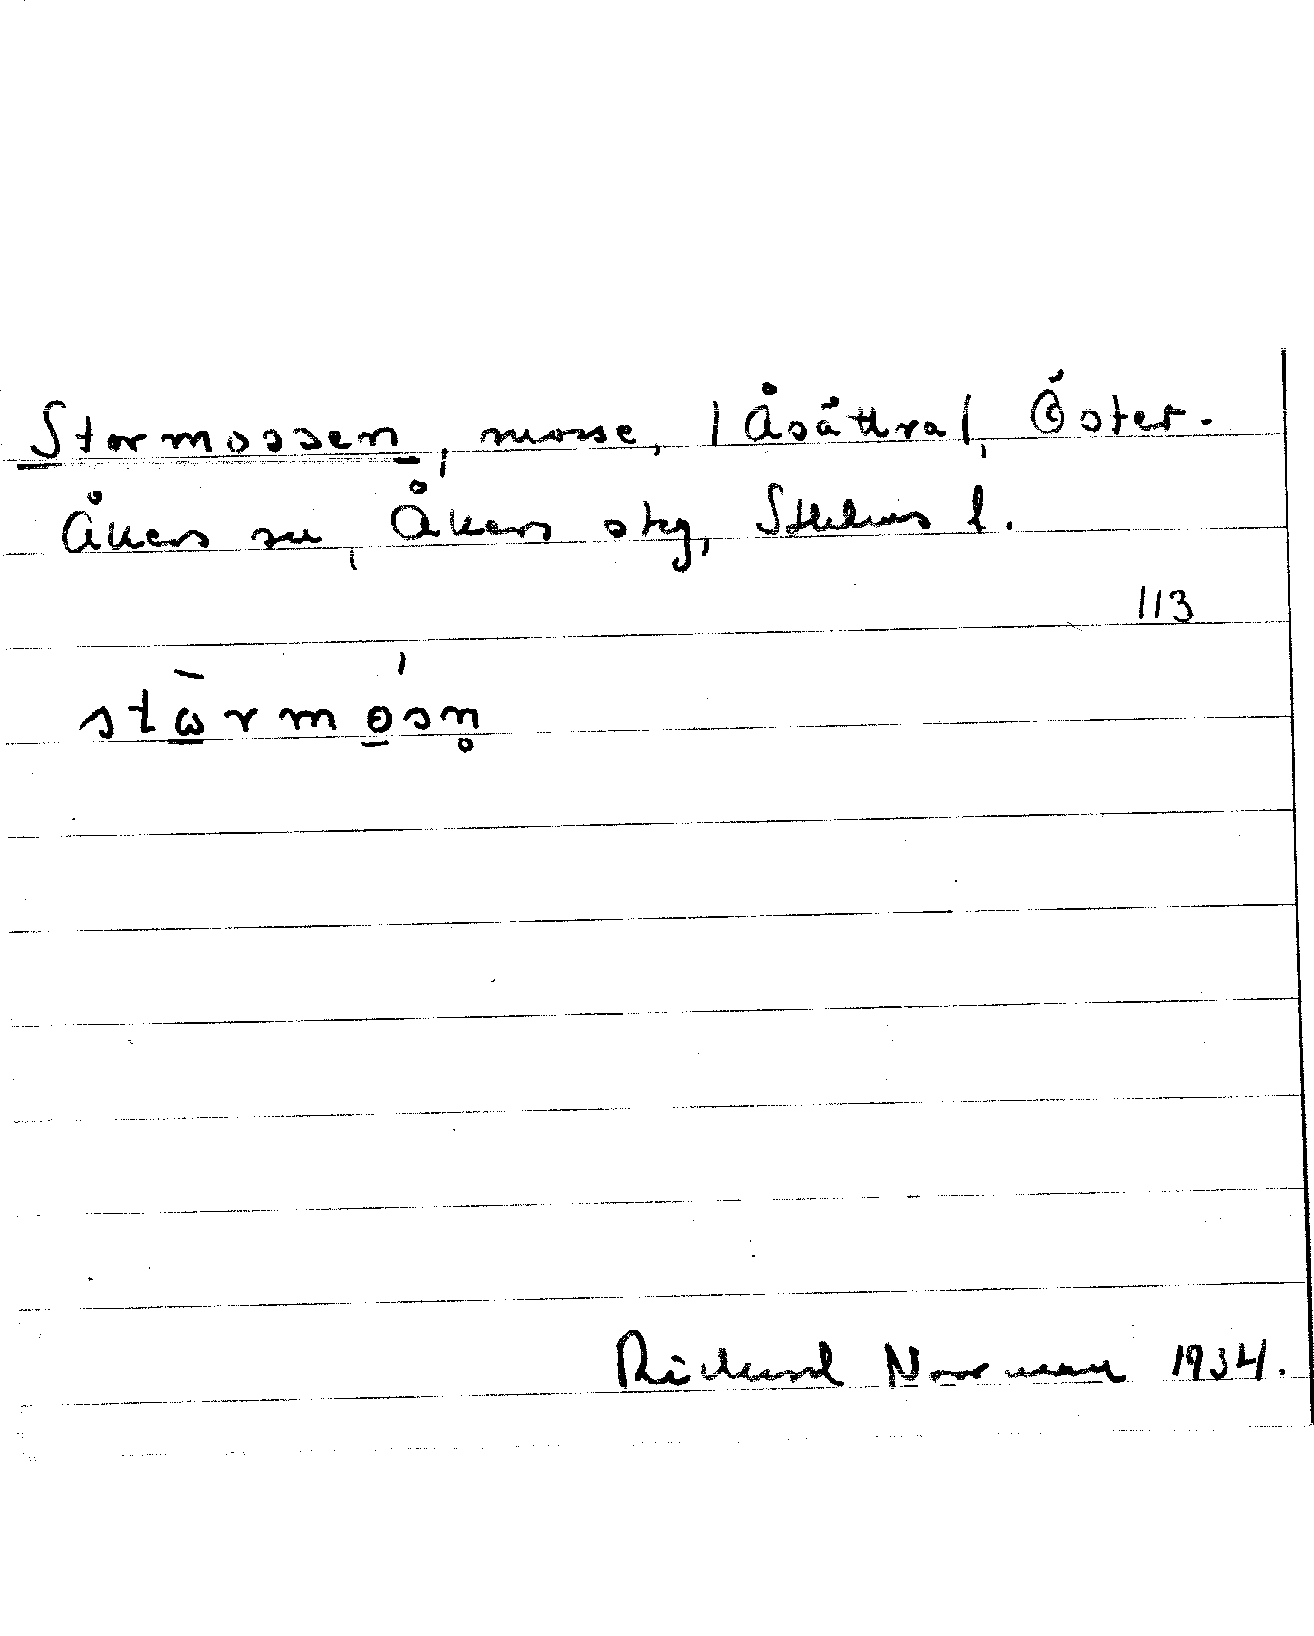 Stormossen, mosse, /Åsättra/, Öster-
Åkers sn, Åkers skg, Sthlms l.
113
stὼrmósn̥
Rickard Norrman 1934.